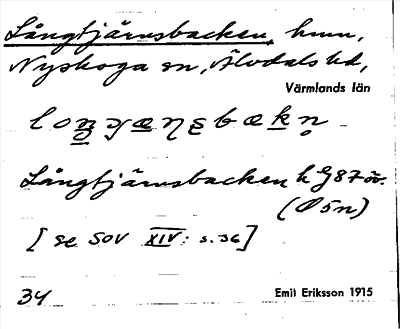 Långtjärnsbacken, hmn,
Nyskoga sn, Älvdals hd,
Värmlands län
Långtjärnsbacken h G87 öv.
(Ö5n)
[se SOV XIV: s. 36]
34
Emil Eriksson 1915